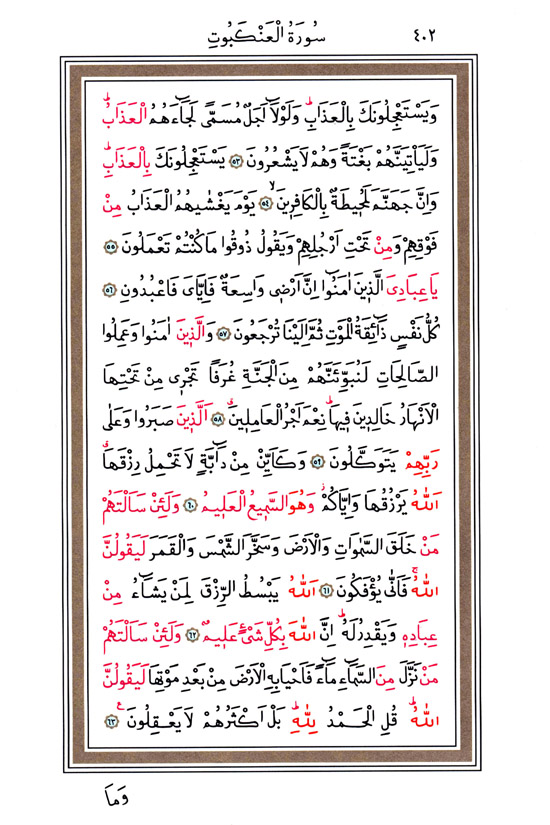 سُورَةُ الْعَنْكَبُوتِ ٤٠٢
وَيَسْتَعْجِلُونَكَ بِالْعَذَابِۜ وَلَوْلَٓا اَجَلٌ مُسَمًّى لَجَٓاءَهُمُ الْعَذَابُۜ
وَلَيَأْتِيَنَّهُمْ بَغْتَةً وَهُمْ لَا يَشْعُرُونَ ﴿٥٣﴾ يَسْتَعْجِلُونَكَ بِالْعَذَابِۜ
وَاِنَّ جَهَنَّمَ لَمُح۪يطَةٌ بِالْكَافِر۪ينَۙ ﴿٥٤﴾ يَوْمَ يَغْشٰيهُمُ الْعَذَابُ مِنْ
فَوْقِهِمْ وَمِنْ تَحْتِ اَرْجُلِهِمْ وَيَقُولُ ذُوقُوا مَا كُنْتُمْ تَعْمَلُونَ ﴿٥٥﴾
يَا عِبَادِيَ الَّذ۪ينَ اٰمَنُٓوا اِنَّ اَرْض۪ي وَاسِعَةٌ فَاِيَّايَ فَاعْبُدُونِ ﴿٥٦﴾
كُلُّ نَفْسٍ ذَٓائِقَةُ الْمَوْتِ ثُمَّ اِلَيْنَا تُرْجَعُونَ ﴿٥٧﴾ وَالَّذ۪ينَ اٰمَنُوا وَعَمِلُوا
الصَّالِحَاتِ لَنُبَوِّئَنَّهُمْ مِنَ الْجَنَّةِ غُرَفًا تَجْر۪ي مِنْ تَحْتِهَا
الْاَنْهَارُ خَالِد۪ينَ ف۪يهَاۜ نِعْمَ اَجْرُ الْعَامِل۪ينَۗ ﴿٥٨﴾ اَلَّذ۪ينَ صَبَرُوا وَعَلٰى
رَبِّهِمْ يَتَوَكَّلُونَ ﴿٥٩﴾ وَكَاَيِّنْ مِنْ دَٓابَّةٍ لَا تَحْمِلُ رِزْقَهَاۗ
اَللّٰهُ يَرْزُقُهَا وَاِيَّاكُمْۘ وَهُوَ السَّم۪يعُ الْعَل۪يمُ ﴿٦٠﴾ وَلَئِنْ سَاَلْتَهُمْ
مَنْ خَلَقَ السَّمٰوَاتِ وَالْاَرْضَ وَسَخَّرَ الشَّمْسَ وَالْقَمَرَ لَيَقُولُنَّ
اللّٰهُۚ فَاَنّٰى يُؤْفَكُونَ ﴿٦١﴾ اَللّٰهُ يَبْسُطُ الرِّزْقَ لِمَنْ يَشَٓاءُ مِنْ
عِبَادِه۪ وَيَقْدِرُ لَهُۜ اِنَّ اللّٰهَ بِكُلِّ شَيْءٍ عَل۪يمٌ ﴿٦٢﴾ وَلَئِنْ سَاَلْتَهُمْ
مَنْ نَزَّلَ مِنَ السَّمَٓاءِ مَٓاءً فَاَحْيَا بِهِ الْاَرْضَ مِنْ بَعْدِ مَوْتِهَا لَيَقُولُنَّ
اللّٰهُۜ قُلِ الْحَمْدُ لِلّٰهِۜ بَلْ اَكْثَرُهُمْ لَا يَعْقِلُونَ۟ ﴿٦٣﴾
وَمَا